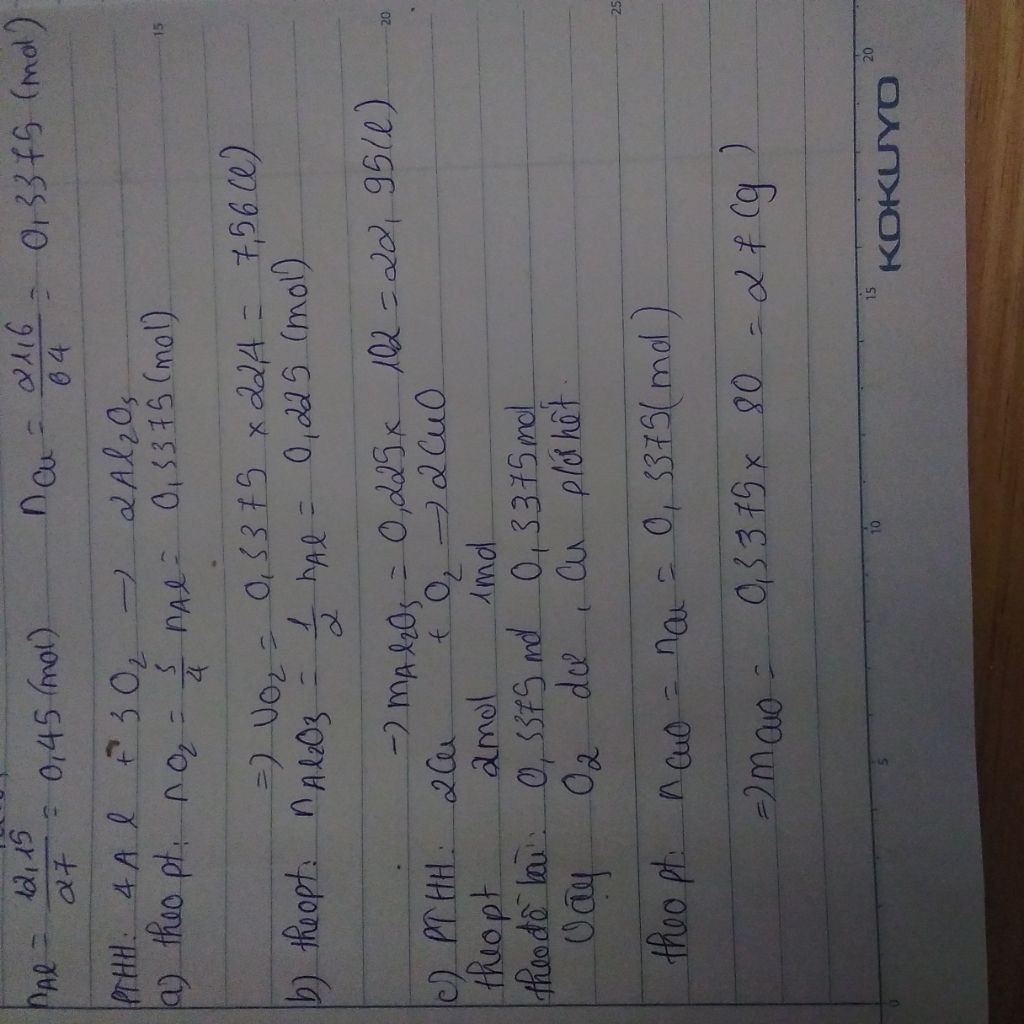 nAl = 12,15/27 = 0,45 (mol) nCu = 21,6/64 = 0,3375 (mol)
PTHH: 4Al + 3O2 → 2Al2O3
a) theo pt: nO2 = 3/4 nAl = 0,3375 (mol)
=) VO2 = 0,3375 x 22,4 = 7,56 (l)
b) theo pt: nAl2O3 = 1/2 nAl = 0,225 (mol)
=) mAl2O3 = 0,225 x 102 = 22,95 (l)
c) PTHH: 2Cu + O2 → 2CuO
theo pt 2mol 1mol
theo đề bài: 0,3375 mol 0,3375 mol
Vậy O2 dư, Cu pứ hết.
theo pt: nCuO = nCu = 0,3375 (mol)
=) mCuO = 0,3375 x 80 = 27 (g)
0 5 10 15 20
15 20 25
KOKUYO